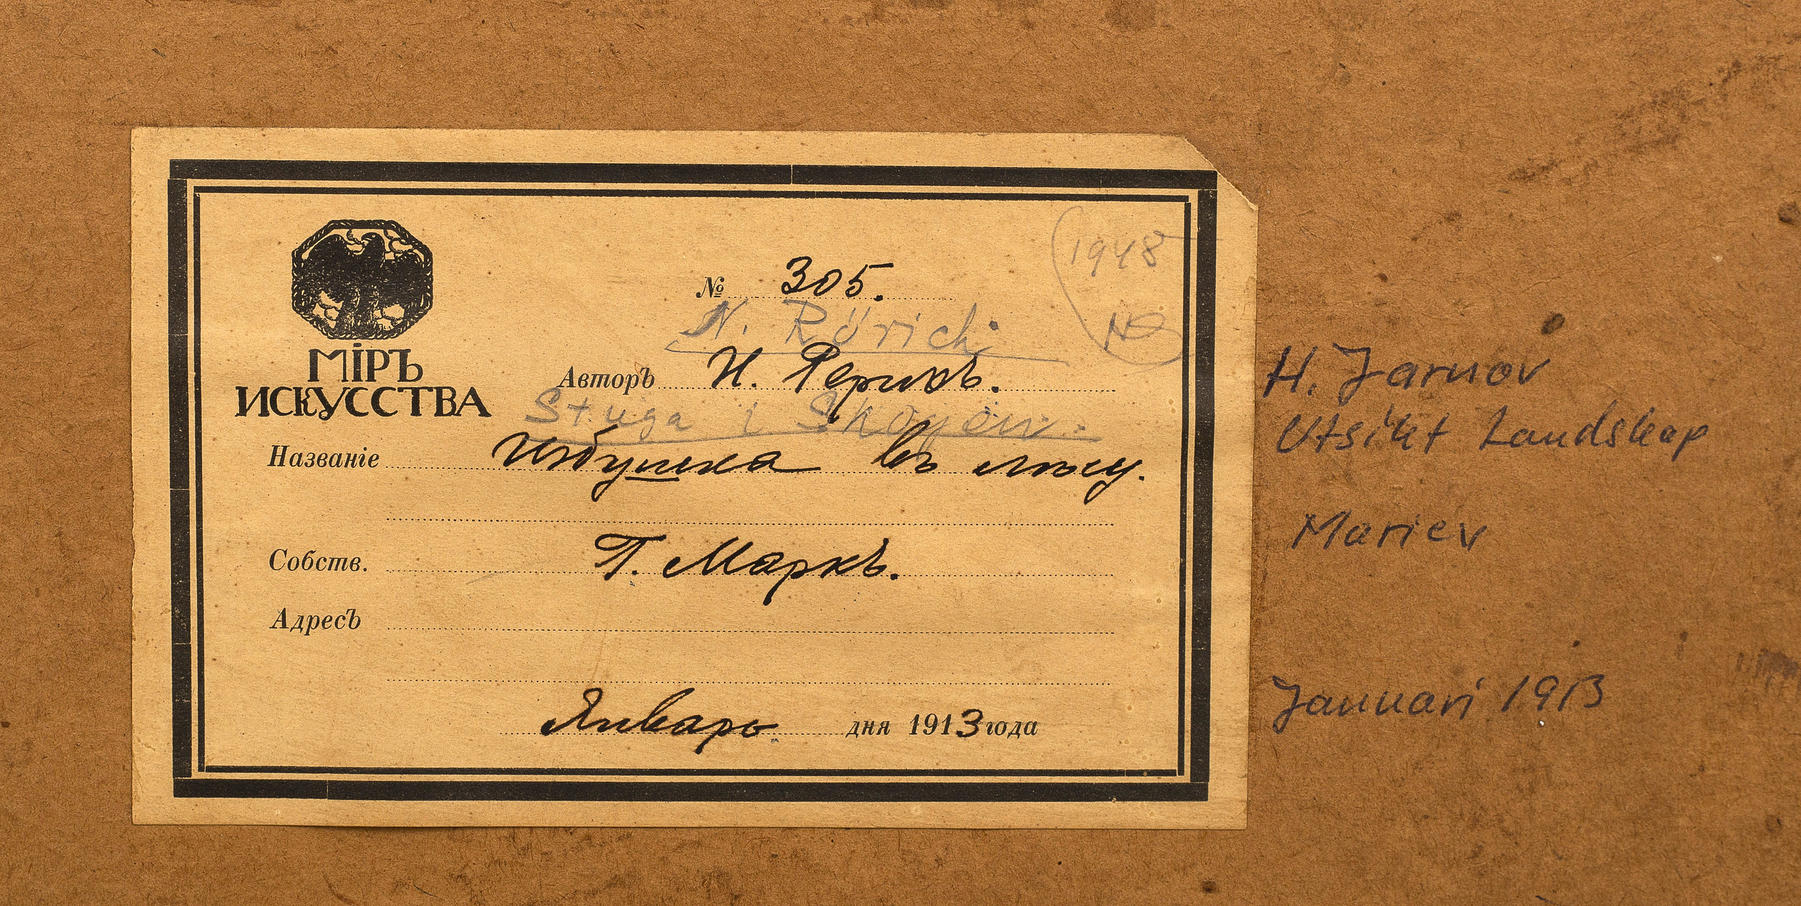 1948
№ 305.
N. Rörich
МIРЪ
ИСКУССТВА
Авторъ Н. Рерихъ.
Stuga i Skogen.
Названіе Избушка въ лѣсу.
Собств. Г. Маркъ.
Адресъ
Январь дня 1913 года
H. Jarnov
Utsikt Landskap
Mariev
Januari 1913